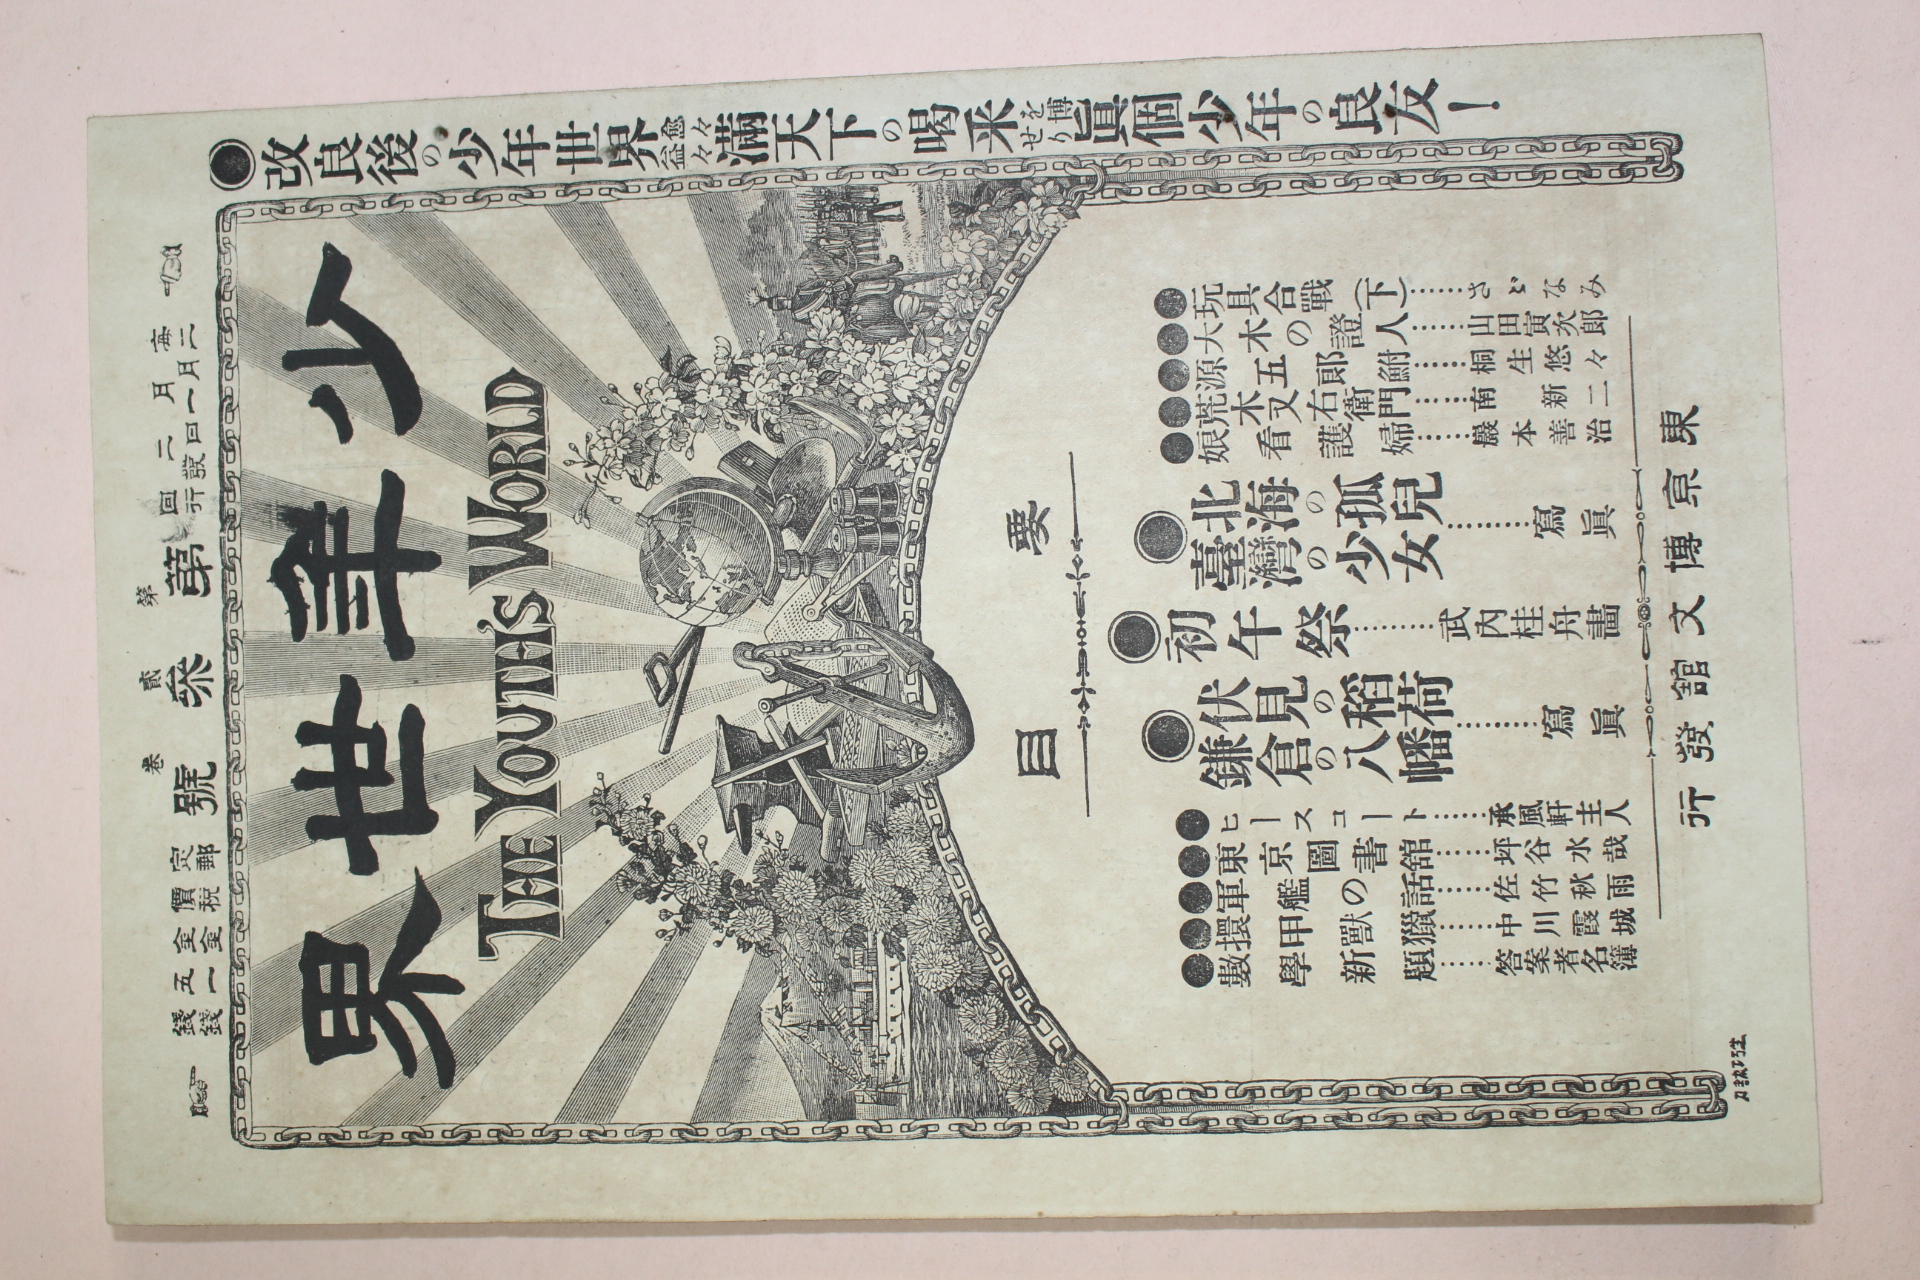 ●改良後の少年世界愈々益々滿天下の喝采を博せり眞個少年の良友!
毎月二回
一月二回發行
第貳卷
第參號
定價金五錢
郵税金一錢
少年世界
THE YOUTH'S WORLD
要目
●玩具合戰(下)……さゞなみ
●大木の證人……山田寅次郎
●源五郎鮒……桐生悠々
●荒木又右衛門……南新二
●娘看護婦……巖本善治
●北海の孤兒
臺灣の少女……寫眞
●初午祭……武内桂舟畫
●伏見の稻荷
鎌倉の八幡……寫眞
●ヒースコート……承風軒主人
●東京圖書館……坪谷水哉
●軍艦の話……佐竹秋雨
●擐甲獸獵……中川霞城
●數學新題……答案者名簿
東京博文館發行